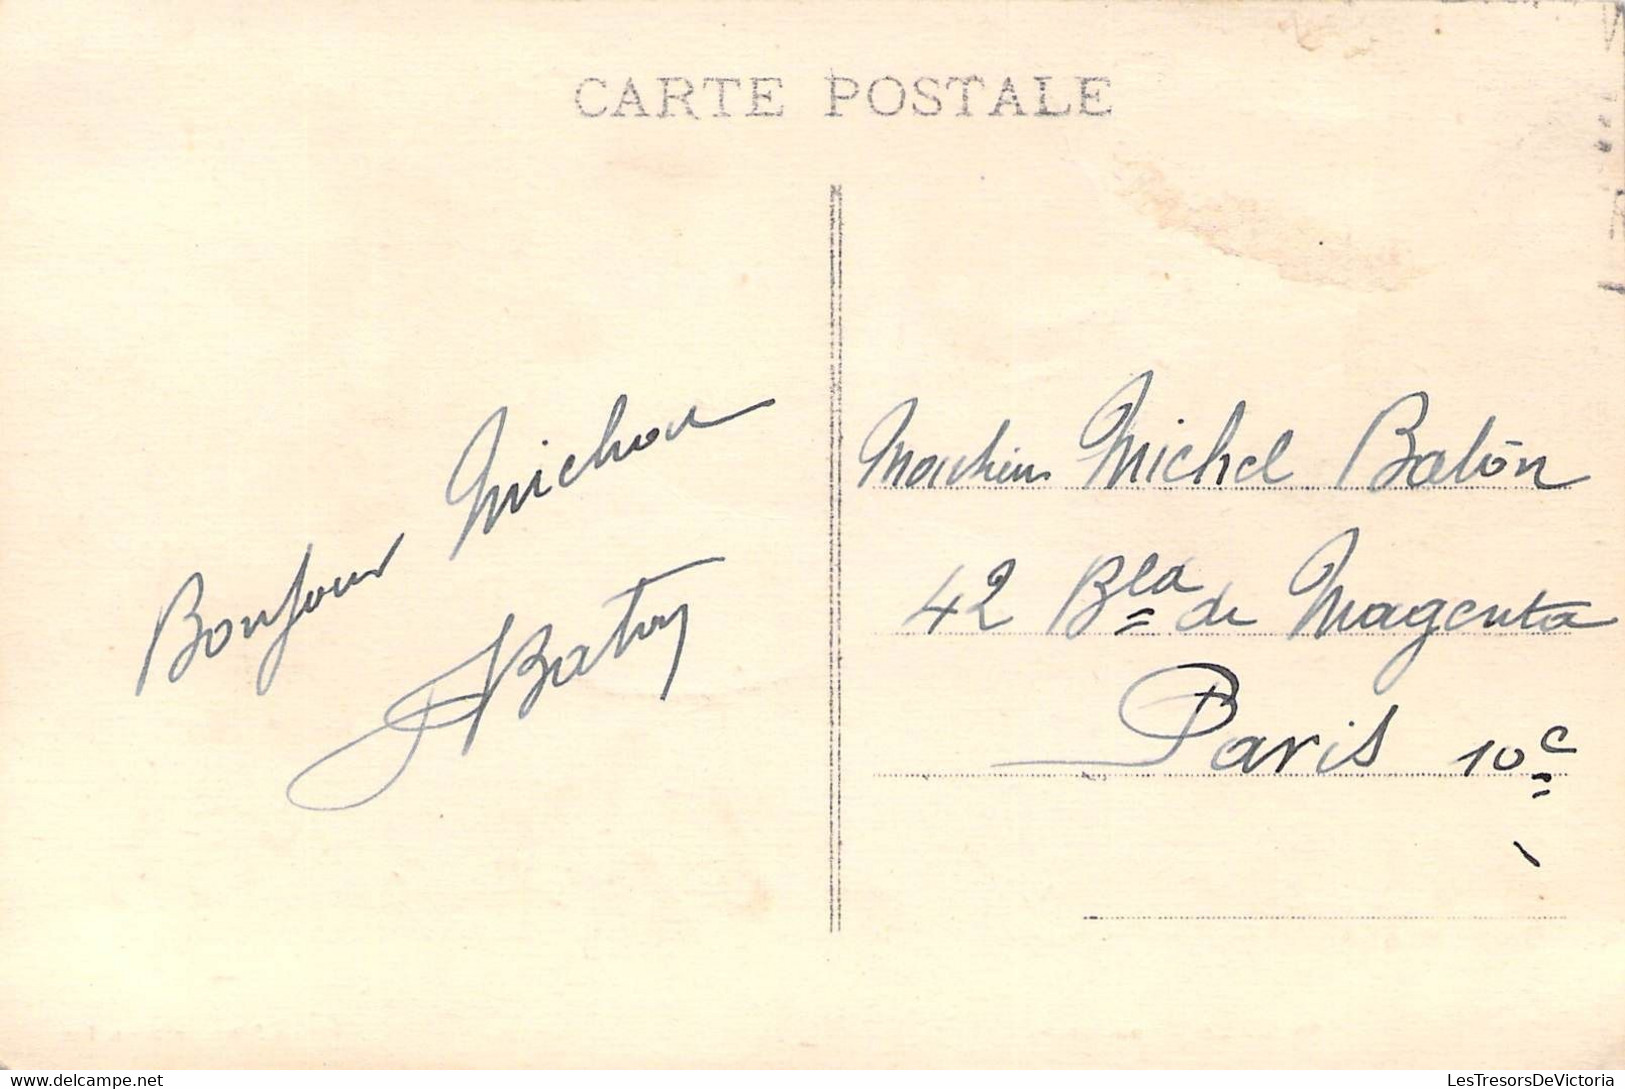 CARTE POSTALE
Bonjour Michou
Monsieur Michel Balon
42 Bld de Magenta
Paris 10e
delcampe.net
LesTresorsDeVictoria